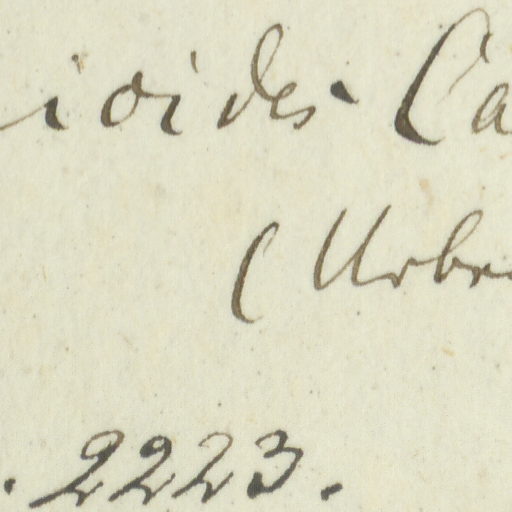 ioides Ca
(Urba
. 2223.